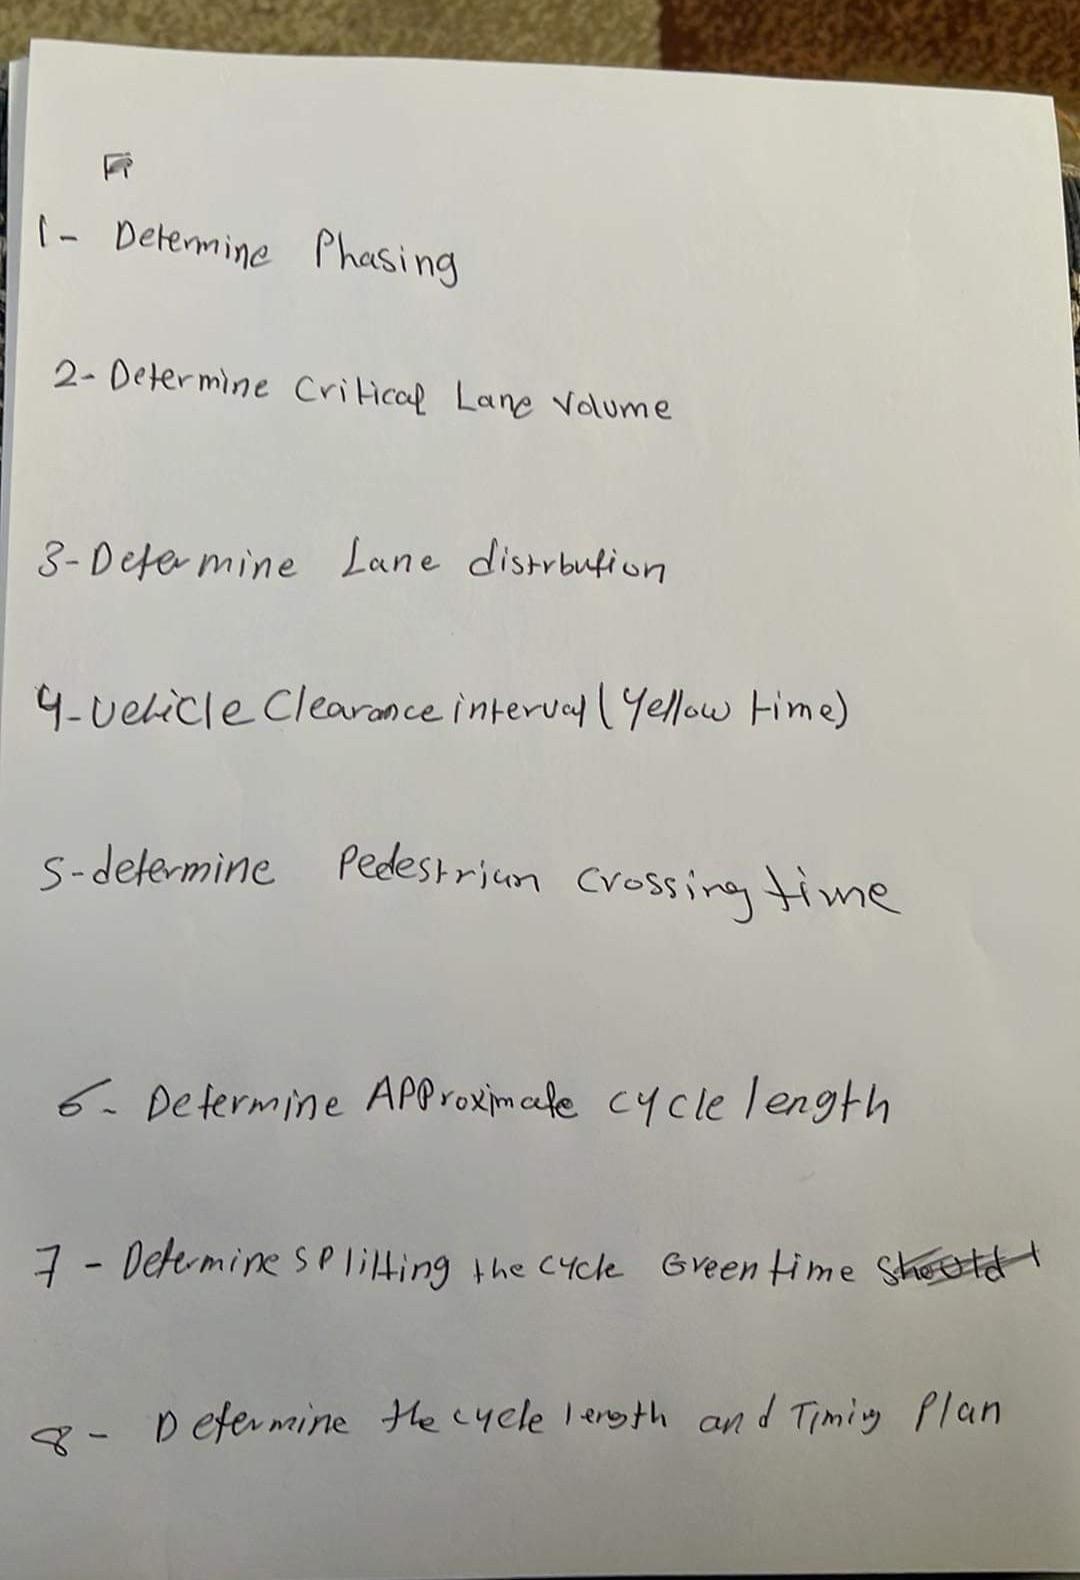 1- Determine Phasing
2- Determine Critical Lane Volume
3- Determine Lane distrbution
4- Vehicle Clearance interval (Yellow time)
5- determine Pedestrian crossing time
6- Determine APProximate cycle length
7 - Determine splitting the cycle Green time
8 - Determine the cycle length and Timing Plan